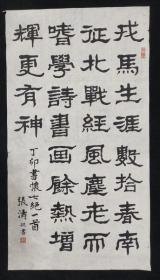 戎馬生涯數拾春南
征北戰經風塵老而
嗜學詩書画餘熱增
輝更有神
丁卯書懷七絕一首
張濤